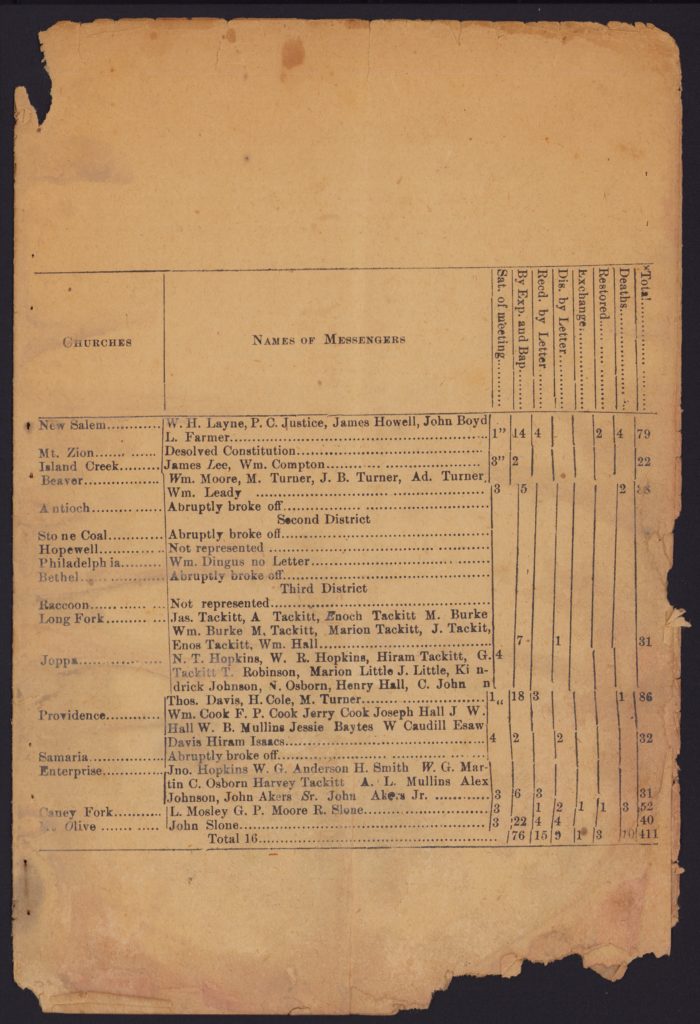 CHURCHES
NAMES OF MESSENGERS
Sat. of meeting
By Exp. and Bap
Recd. by Letter
Dis. by Letter
Exchange
Restored
Deaths
Total
New Salem............ W. H. Layne, P. C. Justice, James Howell, John Boyd
L. Farmer............ 1" 14 4 2 4 79
Mt. Zion............ Desolved Constitution............
Island Creek............ James Lee, Wm. Compton............ 3" 2 22
Beaver............ Wm. Moore, M. Turner, J. B. Turner, Ad. Turner,
Wm. Leady ............ 3 5 2
Antioch............ Abruptly broke off............
Second District
Stone Coal............ Abruptly broke off............
Hopewell............ Not represented ............
Philadelphia............ Wm. Dingus no Letter............
Bethel............ Abruptly broke off............
Third District
Raccoon............ Not represented............
Long Fork............ Jas. Tackitt, A Tackitt, Enoch Tackitt M. Burke
Wm. Burke M. Tackitt, Marion Tackitt, J. Tackit,
Enos Tackitt, Wm. Hall............ 7 1 31
Joppa............ N. T. Hopkins, W. R. Hopkins, Hiram Tackitt, G. 4
Tackitt T. Robinson, Marion Little J. Little, Ki n-
drick Johnson, N. Osborn, Henry Hall, C. John n
Thos. Davis, H. Cole, M. Turner............ 1" 18 3 1 86
Providence............ Wm. Cook F. P. Cook Jerry Cook Joseph Hall J W.
Hall W. B. Mullins Jessie Baytes W Caudill Esaw
Davis Hiram Isaacs............ 4 2 2 32
Samaria............ Abruptly broke off............
Enterprise............ Jno. Hopkins W. G. Anderson H. Smith W. G. Mar-
tin C. Osborn Harvey Tackitt A. L. Mullins Alex
Johnson, John Akers Sr. John Akers Jr. ............ 3 6 3 31
Caney Fork............ L. Mosley G. P. Moore R. Slone............ 3 1 2 1 1 3 52
Mt. Olive ............ John Slone............ 3 22 4 4 40
Total 16............ 76 15 9 1 3 10 411